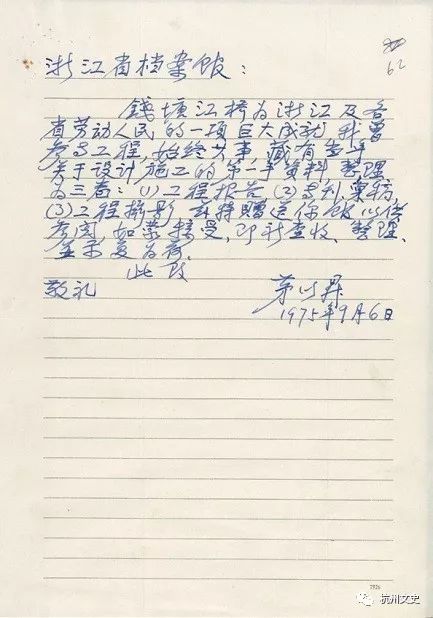 62
浙江省档案馆：
錢塘江桥为浙江及各
省劳动人民的一项巨大成就，我曾
参与工程，始终其事，藏有生平
关于设计施工的第一手資料，整理
为三卷：(1)工程报告(2)专刊彙稿,
(3)工程摄影，兹特贈送你馆以供
参阅，如蒙接受，即祈查收、整理、
并示复为荷.
此致
敬礼
茅以昇
1975年9月6日
7926
杭州文史